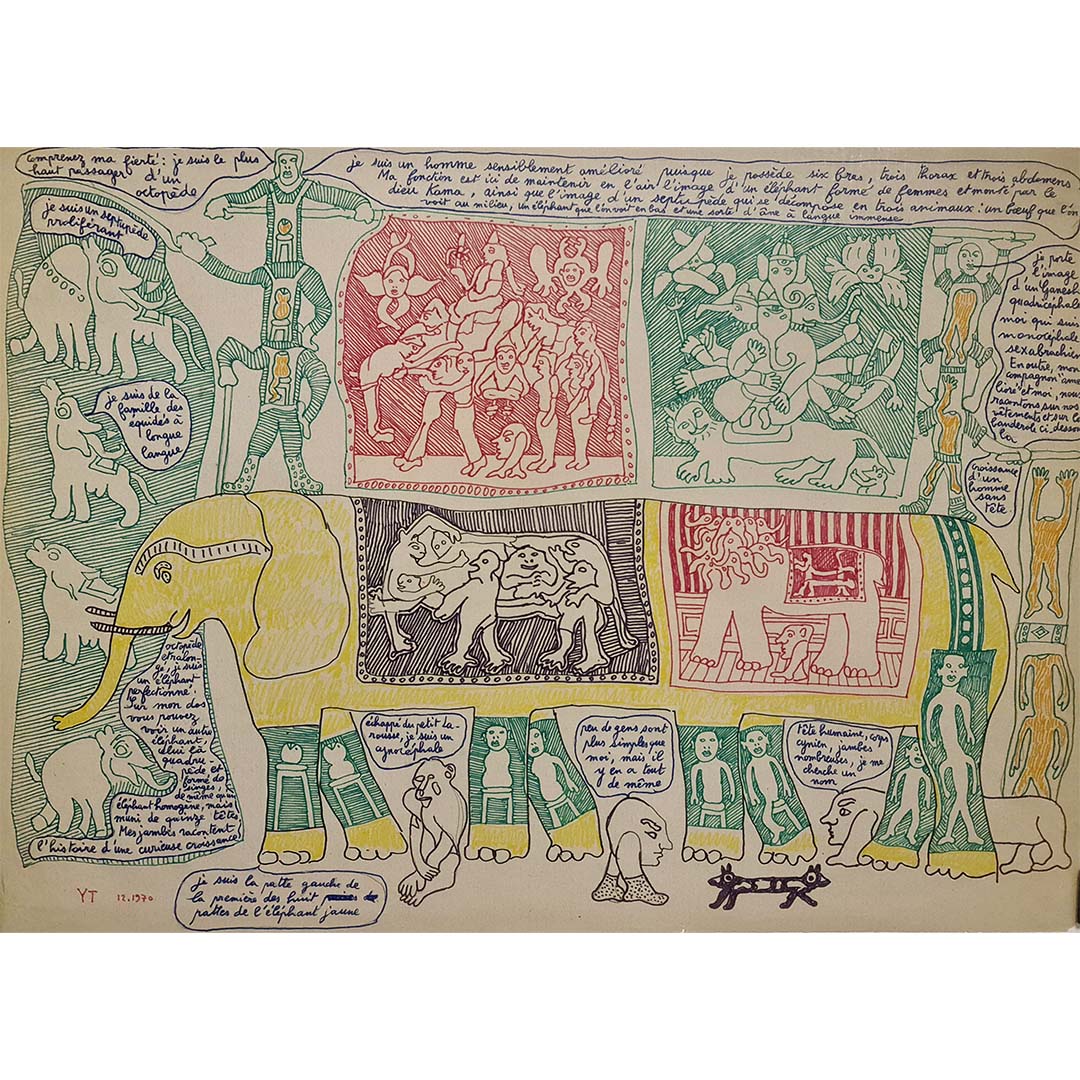 comprenez ma fierté : je suis le plus
haut passager d'un
octopède
je suis un homme sensiblement amélioré puisque je possède six bras, trois thorax et trois abdomens
Ma fonction est ici de maintenir en l'air l'image d'un éléphant formé de femmes et monté par le
dieu Kama, ainsi que l'image d'un septupède qui se décompose en trois animaux : un bœuf que l'on
voit au milieu, un éléphant que l'on voit en bas et une sorte d'âne à langue immense.
je suis un septupède
proliférant
je porte
l'image
d'un Ganesh
quadricéphale
moi qui suis
monocéphale
sexabrachien
En outre, mon
compagnon amé
lioré et moi, nous
racontons sur nos
vêtements et sur la
banderole ci-dessous
la
croissance
d'un
homme
sans
tête.
je suis de la
famille des
équidés à
longue
langue
octopède
et rallon-
gé, je suis
un éléphant
perfectionné.
Sur mon dos
vous pouvez
voir un autre
éléphant,
celui là
quadru
pède et
formé de
singes,
de même qu'un
éléphant homogène, mais
muni de quinze têtes
Mes jambes racontent
l'histoire d'une curieuse croissance
échappé du petit La-
rousse, je suis un
agnocéphale
peu de gens sont
plus simples que
moi, mais il
y en a tout
de même
tête humaine, corps
cynien, jambes
nombreuses, je me
cherche un
nom
je suis la patte gauche de
la première des huit
pattes de l'éléphant jaune
YT 12.1970